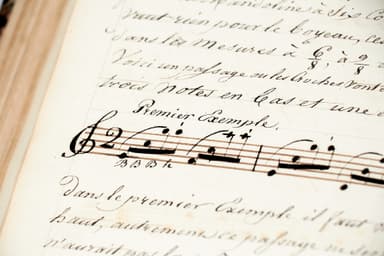 mandoline à Six Co
faut rien pour le Boyeau, ce
dans les mesures à 6/8, à 9/8
Voici un passage ou les Croches vont
trois notes en bas et une
Premier Exemple.
2
B B B h
Dans le premier Exemple il faut
haut, autrement ce passage ne
n'aurait pas l